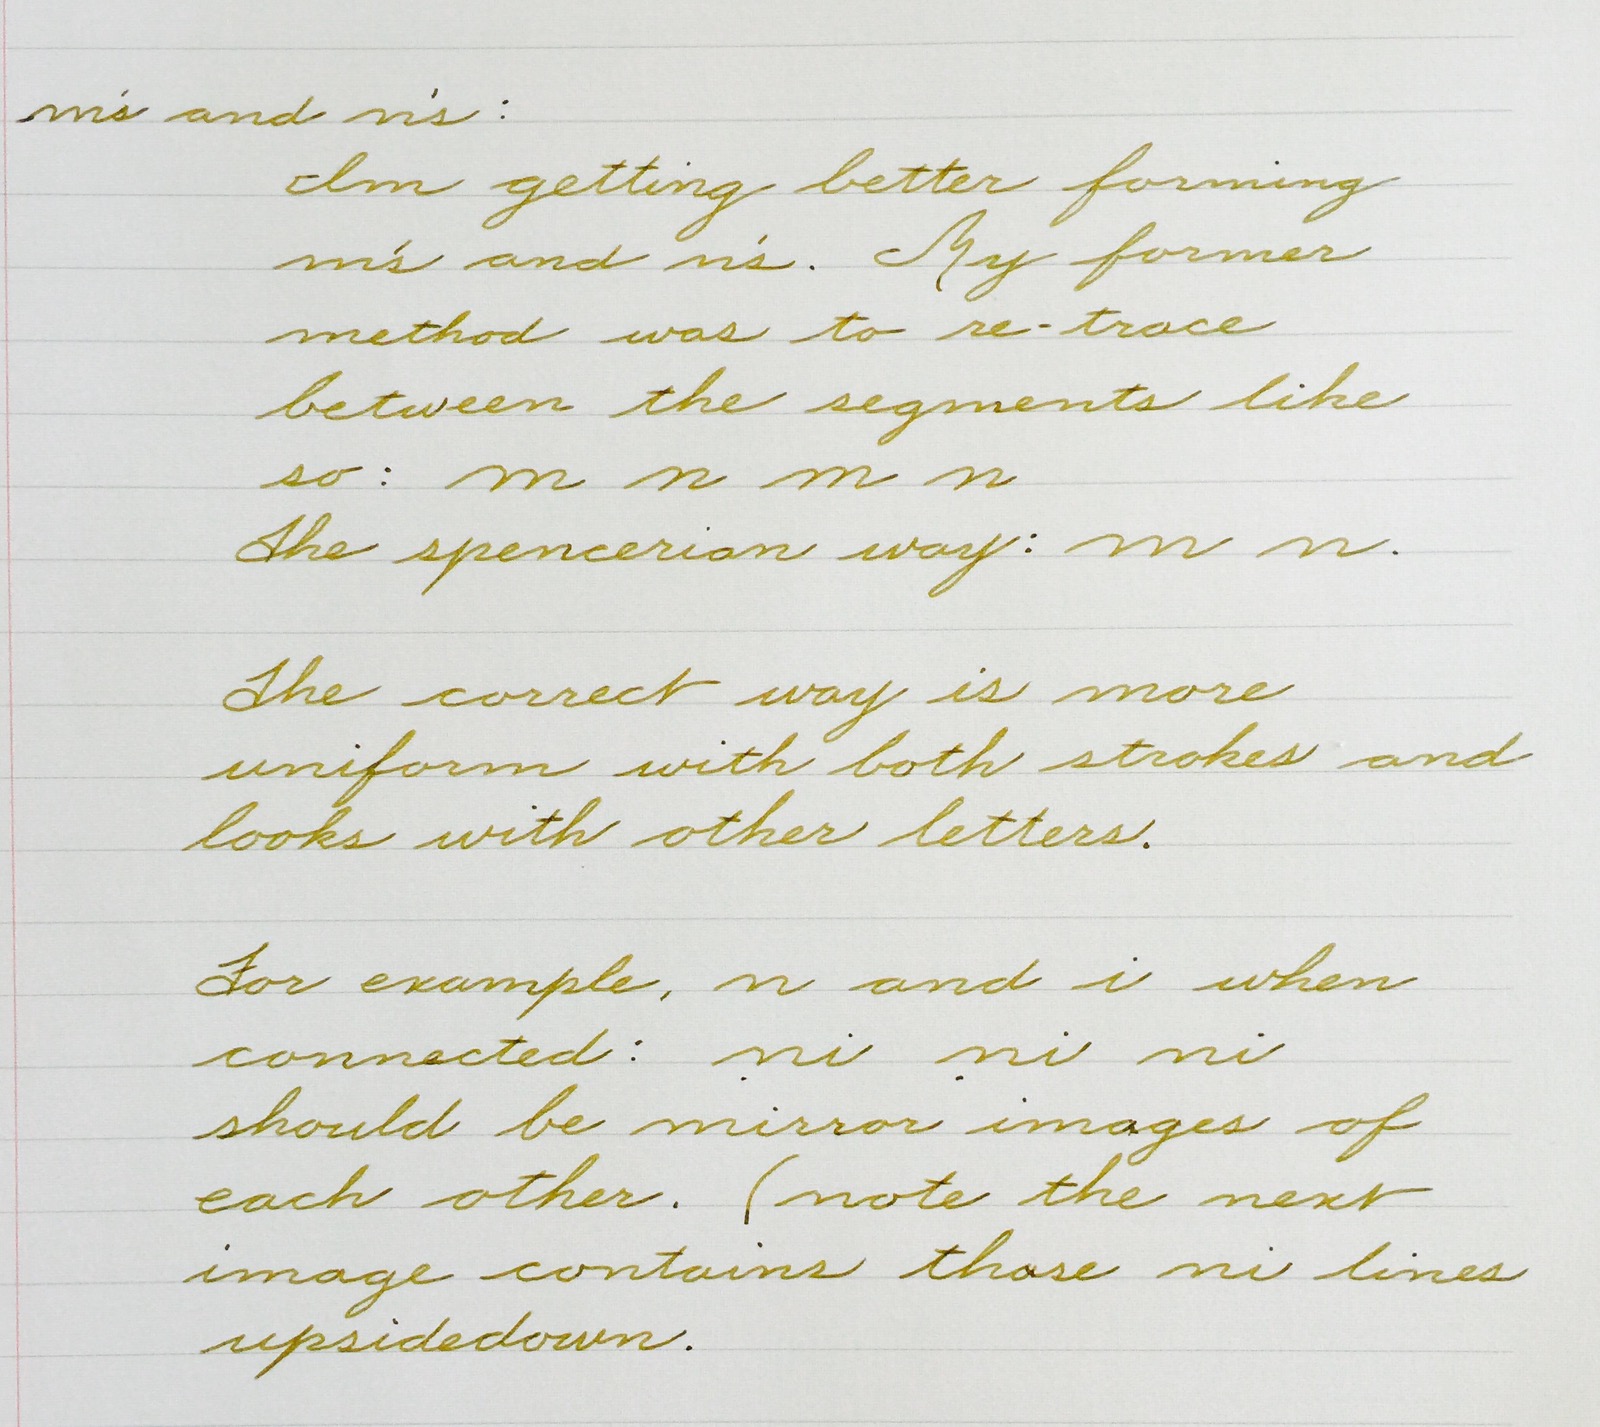 m's and n's:
Im getting better forming
m's and n's. My former
method was to re-trace
between the segments like
so: m n m n
The spencerian way: m n.
The correct way is more
uniform with both strokes and
looks with other letters.
For example, n and i when
connected: ni ni ni
should be mirror images of
each other. (note the next
image contains those ni lines
upsidedown.